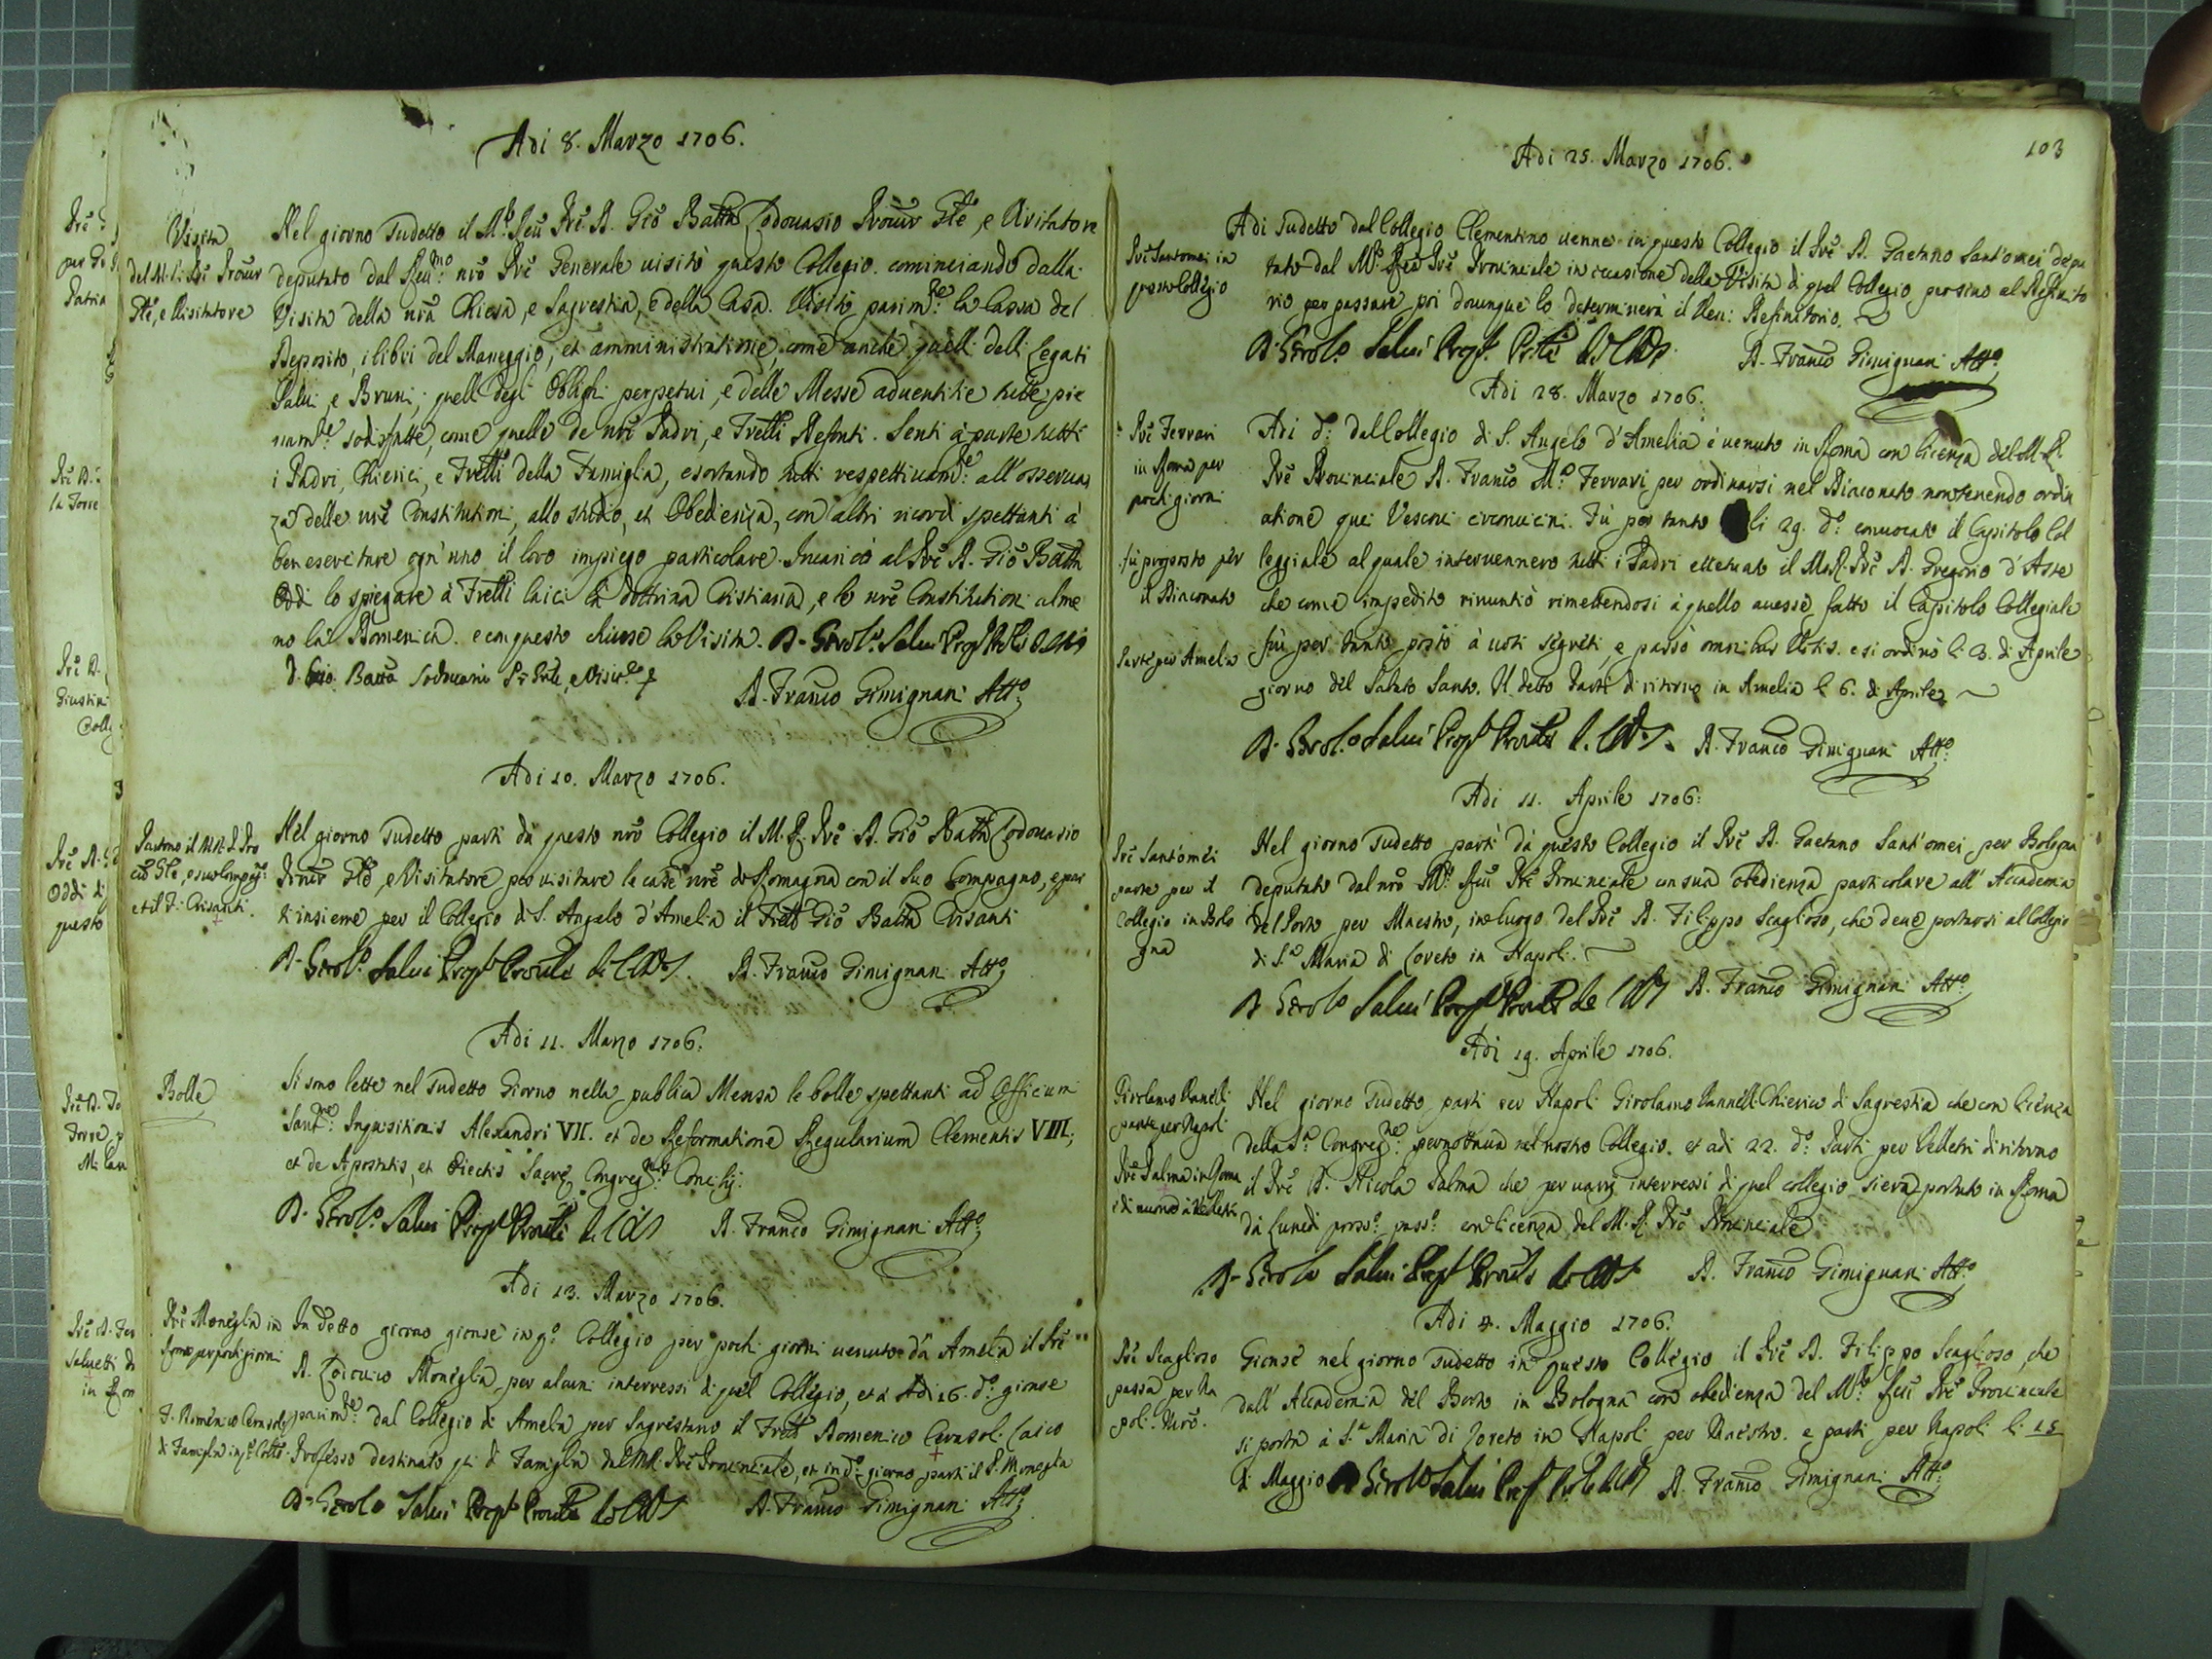 Adi 8. Marzo 1706.
Visita
del M. R. Pre Procur
Gle, e Visitatore
Nel giorno sudetto il M.to Reu Pre D. Gio Batta Lodouasio Procur Gle, e Visitatore
deputato dal Reu.mo nro Pre Generale uisitò questo Collegio. cominciando dalla
Visita della nra Chiesa, e Sagrestia, e della Casa. Visitò parim.te la Cassa del
Deposito, i libri del Maneggio, et amministratione come anche quelli delli Legati
Salui, e Bruni, quelli degl' Oblighi perpetui, e delle Messe aduentitie tutte pie
nam.te sodisfatte, come quelle de nri Padri, e Frelli Defonti. Sentì à parte tutti
i Padri, Chierici, e Frelli della Famiglia, esortando tutti respettiuam.te all' osseruan
za delle nre Constitutioni, allo studio, et Obedienza, con altri ricordi spettanti à
ben esercitare ogn' uno il loro impiego particolare. Incaricò al Pre D. Gio Batta
Oddi lo spiegare à Frelli laici la dottrina Christiana, e le nre Constitutioni alme
no la Domenica. e con questo chiuse la Visita. D. Girol.o Salui Prep.to
D. Gio. Batta Lodouasio Pr. Gnle, e Visit.re
D. Franco Gimignani Att.o
Adi 10. Marzo 1706.
Partono il M. R. P. Pro
cur Gle, e suo Compag.o
et il F. Crisanti.
Nel giorno sudetto partì da questo nro Collegio il M. R. Pre D. Gio Batta Lodouasio
Procur Gle, e Visitatore per uisitare le case nre di Romagna con il suo Compagno, e par
tì insieme per il Collegio di S. Angelo d'Amelia il Frello Gio Batta Crisanti
D. Girol.o Salui Prep.to D. Franco Gimignani Att.o
Adi 11. Marzo 1706.
Bolle
Si sono lette nel sudetto Giorno nella publica Mensa le bolle spettanti ad Officium
Sant.me Inquisitionis Alexandri VII. et de Reformatione Regularium Clementis VIII;
et de Apostatis, et Eiectis Sacre Congreg.nis Concilij.
D. Girol.o Salui Prep.to D. Franco Gimignani Att.o
Adi 13. Marzo 1706.
Pre Moneglia in
Roma per pochi giorni
F. Domenico Cerasoli
di Famiglia in q.o Coll.o
In detto giorno gionse in q.o Collegio per pochi giorni uenuto da Amelia il Pre
D. Lodouico Moneglia per alcuni interressi di quel Collegio, et à Adi 16. d.o gionse
parim.te dal Collegio di Amelia per Sagrestano il Frello Domenico Cerasoli Laico
Professo destinato qui di Famiglia dal M. R. Pre Prouinciale, et in d.o giorno partì il P. Moneglia
D. Girol.o Salui Prep.to D. Franco Gimignani Att.o
103
Adi 25. Marzo 1706.
Pre Santomei in
questo Collegio
Adi sudetto dal Collegio Clementino uenne in questo Collegio il Pre D. Gaetano Sant'omei depu
tato dal M.to Reu Pre Prouinciale in occasione della Visita di quel Collegio persino al Definito
rio per passare poi douunque lo determinerà il Ven: Definitorio.
D. Girol.o Salui Prep.to D. Franco Gimignani Att.o
Adi 28. Marzo 1706.
Pre Ferrari
in Roma per
pochi giorni
fù proposto per
il Diaconato
Parte per Amelia
Adi d.o dal Collegio di S. Angelo d'Amelia è uenuto in Roma con licenza del M. R.
Pre Prouinciale D. Franco M.a Ferrari per ordinarsi nel Diaconato non tenendo ordin
atione quei Vescoui circonuicini. Fù per tanto li 29. d.o conuocato il Capitolo Col
leggiale al quale interuennero tutti i Padri eccetuato il M. R. Pre D. Gregorio d'Aste
che come impedito rinuntiò rimettendosi à quello auesse fatto il Capitolo Collegiale
fù per tanto posto à uoti segreti, e passò omnibus Votis. e si ordinò li 3. di Aprile
giorno del Sabato Santo. Il detto Partì di ritorno in Amelia li 6. di Aprile
D. Girol.o Salui Prep.to D. Franco Gimignani Att.o
Adi 11. Aprile 1706.
Pre Sant'omei
parte per il
Collegio in Bolo
gna
Nel giorno sudetto partì da questo Collegio il Pre D. Gaetano Sant'omei per Bologna
deputato dal nro M.to Reu Pre Prouinciale con sua obedienza particolare all' Accademia
del Porto per Maestro, in luogo del Pre D. Filippo Scaglioso, che deue portarsi al Collegio
di S.a Maria di Loreto in Napoli.
D. Girol.o Salui Prep.to D. Franco Gimignani Att.o
Adi 19. Aprile 1706.
Girolamo Vannelli
parte per Napoli
Pre Palma in Roma
e di nuouo à Velletri
Nel giorno sudetto partì per Napoli Girolamo Vannelli Chierico di Sagrestia che con licenza
della S.a Congreg.ne pernottaua nel nostro Collegio. et adi 22. d.o Partì per Velletri di ritorno
il Pre D. Nicola Palma che per uarij interressi di quel collegio si era portato in Roma
da Lunedì pross.o pass.o con licenza del M. R. Pre Prouinciale
D. Girol.o Salui Prep.to D. Franco Gimignani Att.o
Adi 4. Maggio 1706.
Pre Scaglioso
passa per Na
poli. Mro.
Gionse nel giorno sudetto in questo Collegio il Pre D. Filippo Scaglioso, che
dall' Accademia del Porto in Bologna con obedienza del M.to Reu Pre Prouinciale
si porta à S.a Maria di Loreto in Napoli per Maestro. e partì per Napoli li 15
di Maggio D. Girol.o Salui Prep.to D. Franco Gimignani Att.o